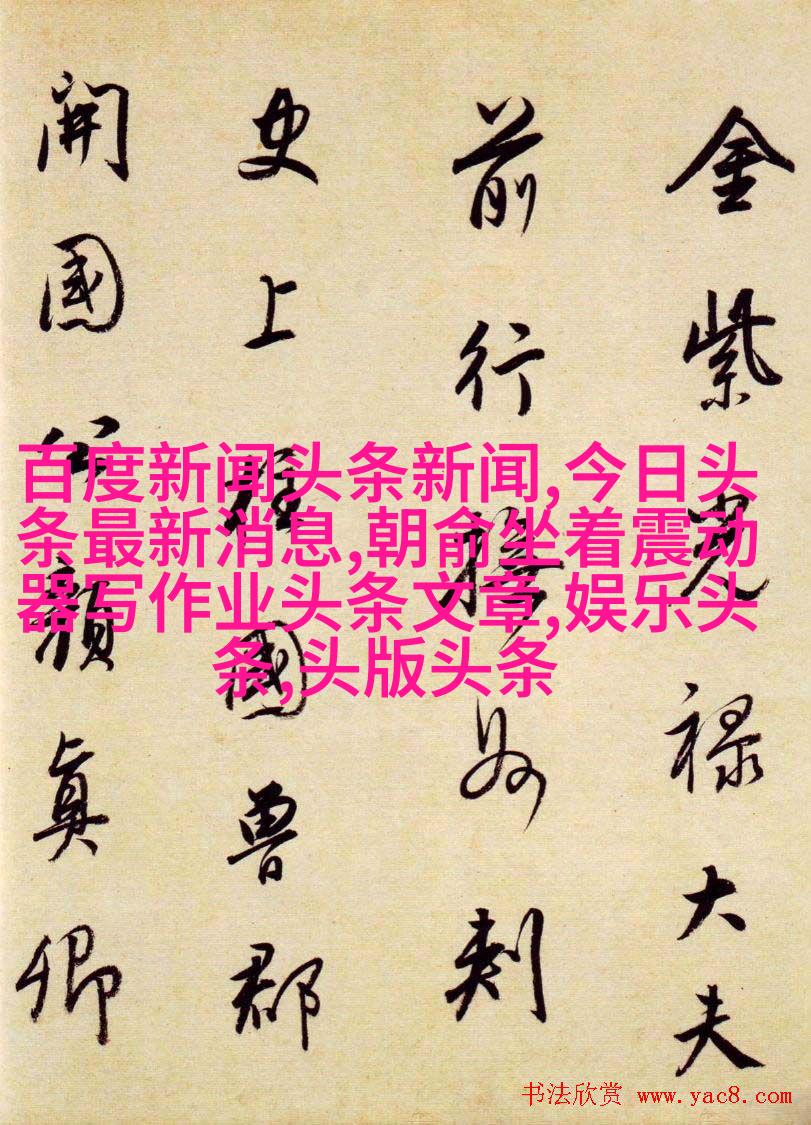 金紫光禄大夫
前行撫州刺
史上柱國魯郡
開國公顏真卿
百度新闻头条新闻,今日头
条最新消息,朝俞坐着震动
器写作业头条文章,娱乐头
条,头版头条
书法欣赏 www.yac8.com